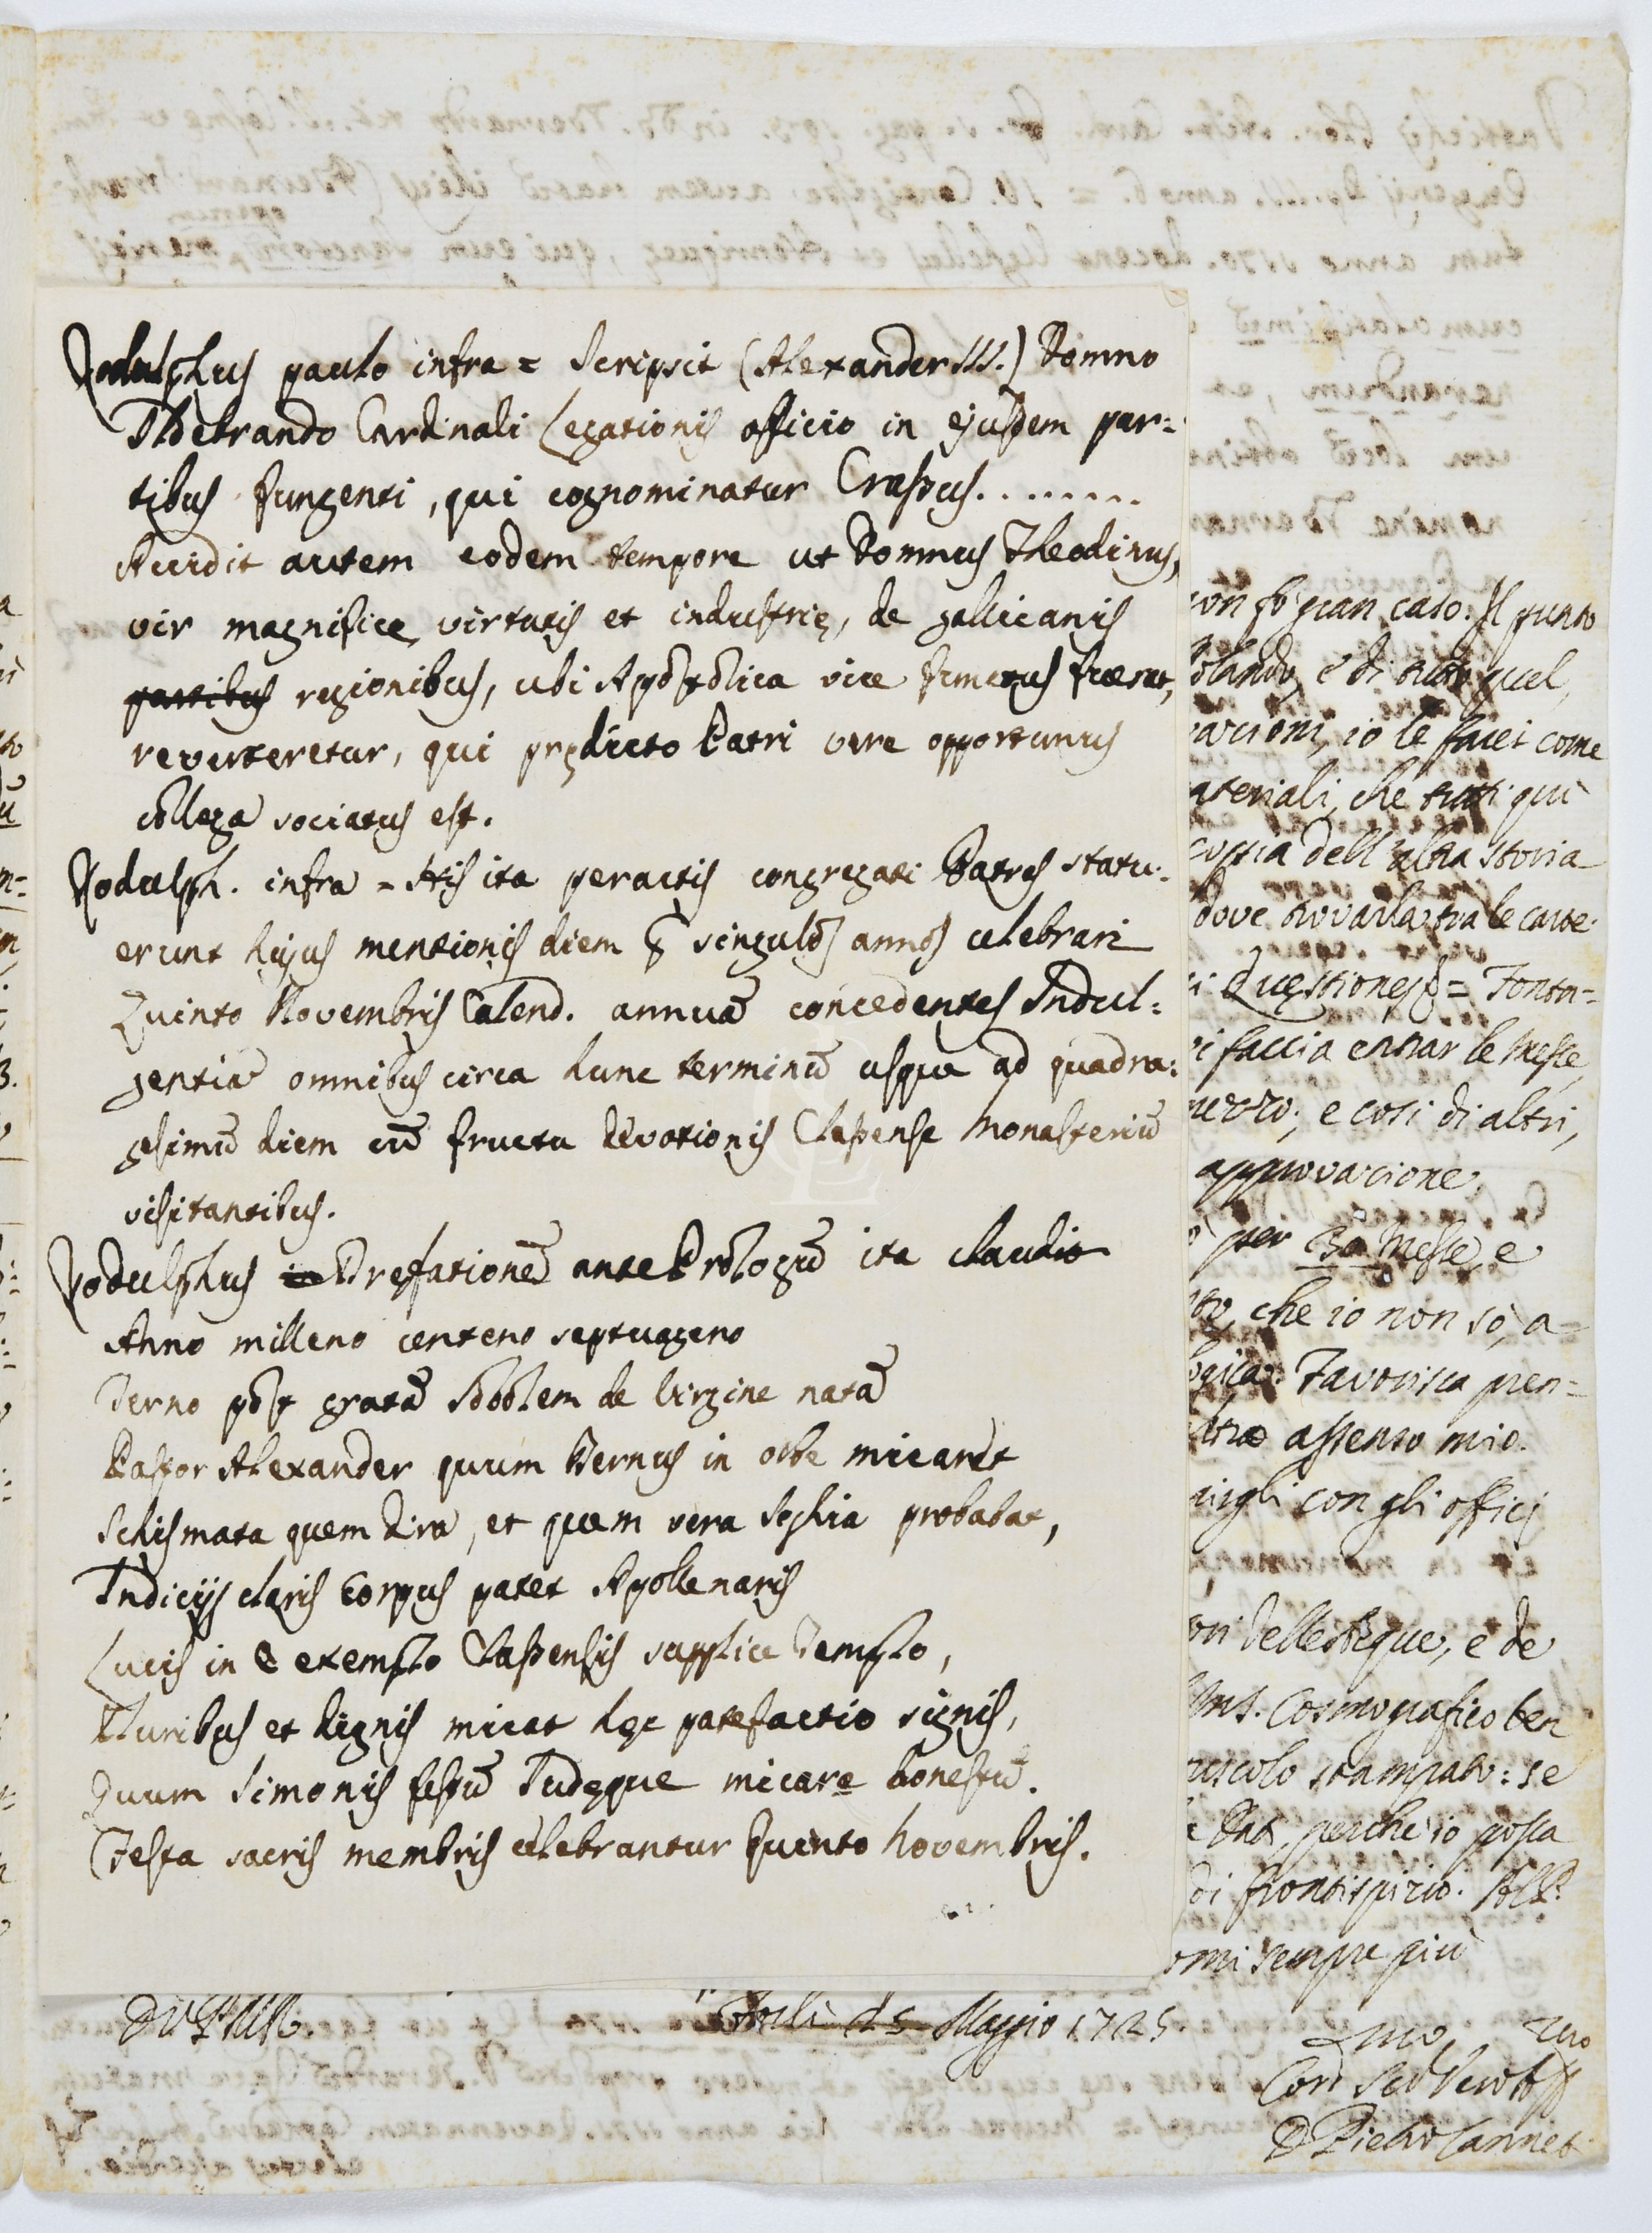 Rodulphus paulo infra = Scripsit (Alexander III.) Domno
Ildebrando Cardinali Legationis officio in ejusdem par=
tibus fungenti, qui cognominatur Crassus. . . . . . . . .
Accidit autem eodem tempore ut Domnus Theodinus,
vir magnifice virtutis et industrię, de gallicanis
partibus regionibus, ubi Apostolica vice functus fuerat,
reverteretur, qui prędicto Patri vere opportunus
collega sociatus est.
Rodulph. infra = His ita peractis congregati Patres statu=
erunt hujus mentionis diem per singulos annos celebrari
Quinto Novembris Calend. annuā concedentes Indul=
gentiā omnibus circa hunc terminū usque ad quadra=
gesimū diem cū fructu devotionis Classense Monasteriū
visitantibus.
Rodulphus in Pręfationē ante Prologū ita claudit
Anno milleno centeno septuageno
Terno post gratā Sobolem de Virgine natā
Pastor Alexander quum Ternus in orbe micaret
Schismata quem dira, et quem vera Sophia probabat,
Indiciis claris Corpus patet Apollenaris
Lucis in exemplo Classensis supplice Templo,
Pluribus et dignis micat hęc patefactio signis,
Quum Simonis festū Judęque micare honestū.
Festa sacris membris celebrantur Quinto Novembris.
non fo gran caso. Il punto
è di tutto quel
io le facei come
ateriali, che tutti quì
dell'altra storia
dove trovarla tra le carte.
Questiones = Fonta=
i faccia entrar le Messe
e così di altri,
approvazione
per 30 Messe, e
che io non so, a=
Favorisca pren=
assenso mio.
con gli offici
e de
Ms. Cosmografico ben
stampato: se
perche io possa
di frontispizio.
sempre più
Forlì 25 Maggio 1725.
D Pietro Canneti